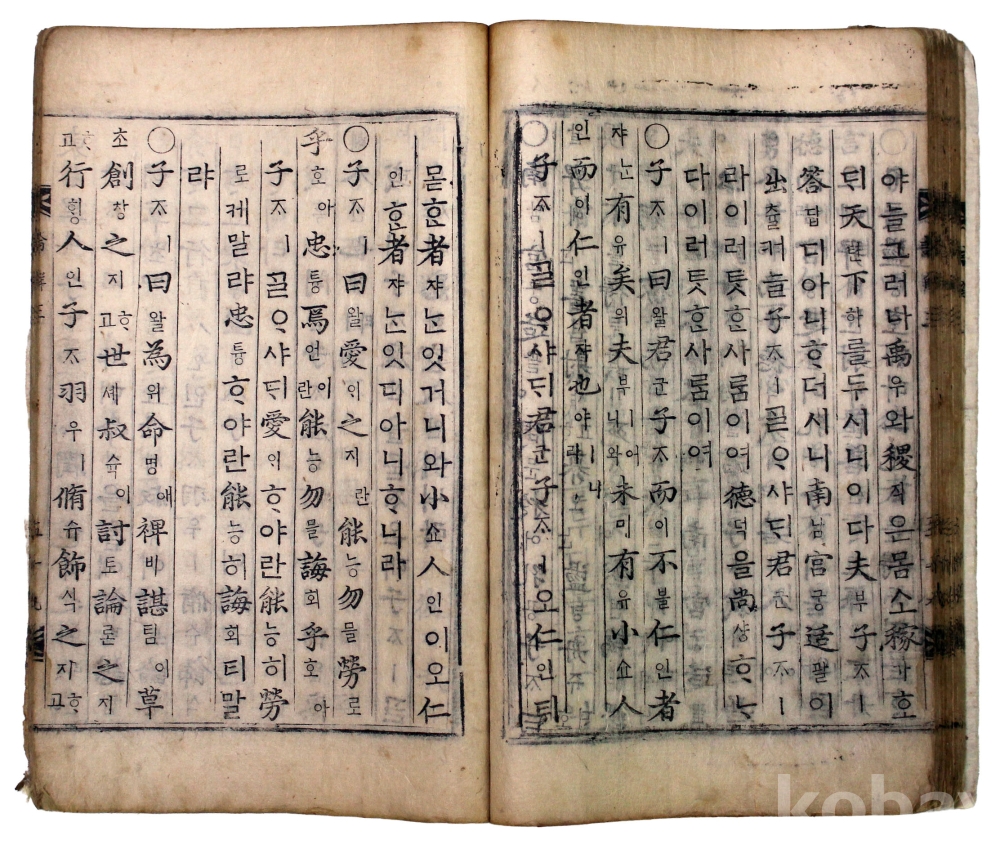 ○야늘그러나禹우와稷직은몸소稼가ᄒᆞ
되天텬下하를두시니이다夫부子ᄌᆞㅣ
答답디아니ᄒᆞ더시니南남宮궁适괄이
出츌커늘子ᄌᆞㅣᄀᆞᆯᄋᆞ샤ᄃᆡ君군子ᄌᆞㅣ
라이러틋ᄒᆞᆫ사ᄅᆞᆷ이여德덕을尙샹ᄒᆞᄂᆞᆫ
다이러틋ᄒᆞᆫ사ᄅᆞᆷ이여
○子ᄌᆞㅣ曰왈君군子ᄌᆞ而이不블仁인者
쟈ᄂᆞᆫ有유矣의夫부ㅣ어니와未미有유小쇼人
인而이仁인者쟈也야ㅣ니라
○子ᄌᆞㅣᄀᆞᆯᄋᆞ샤ᄃᆡ君군子ᄌᆞㅣ오仁인티
몯ᄒᆞᆫ者쟈ᄂᆞᆫ잇거니와小쇼人인이오仁
인ᄒᆞᆫ者쟈ᄂᆞᆫ잇디아니ᄒᆞ니라
○子ᄌᆞㅣ曰왈愛ᄋᆡ之지란能능勿믈勞로
乎호아忠튱焉언이란能능勿믈誨회乎호아
子ᄌᆞㅣᄀᆞᆯᄋᆞ샤ᄃᆡ愛ᄋᆡᄒᆞ야란能능히勞
로케말랴忠튱ᄒᆞ야란能능히誨회티말
랴
○子ᄌᆞㅣ曰왈為위命명애裨비諶팀이草
초創창之지ᄒᆞ고世셰叔슉이討토論론之지
ᄒᆞ고行ᄒᆡᆼ人인子ᄌᆞ羽우ㅣ脩슈飾식之지ᄒᆞ고